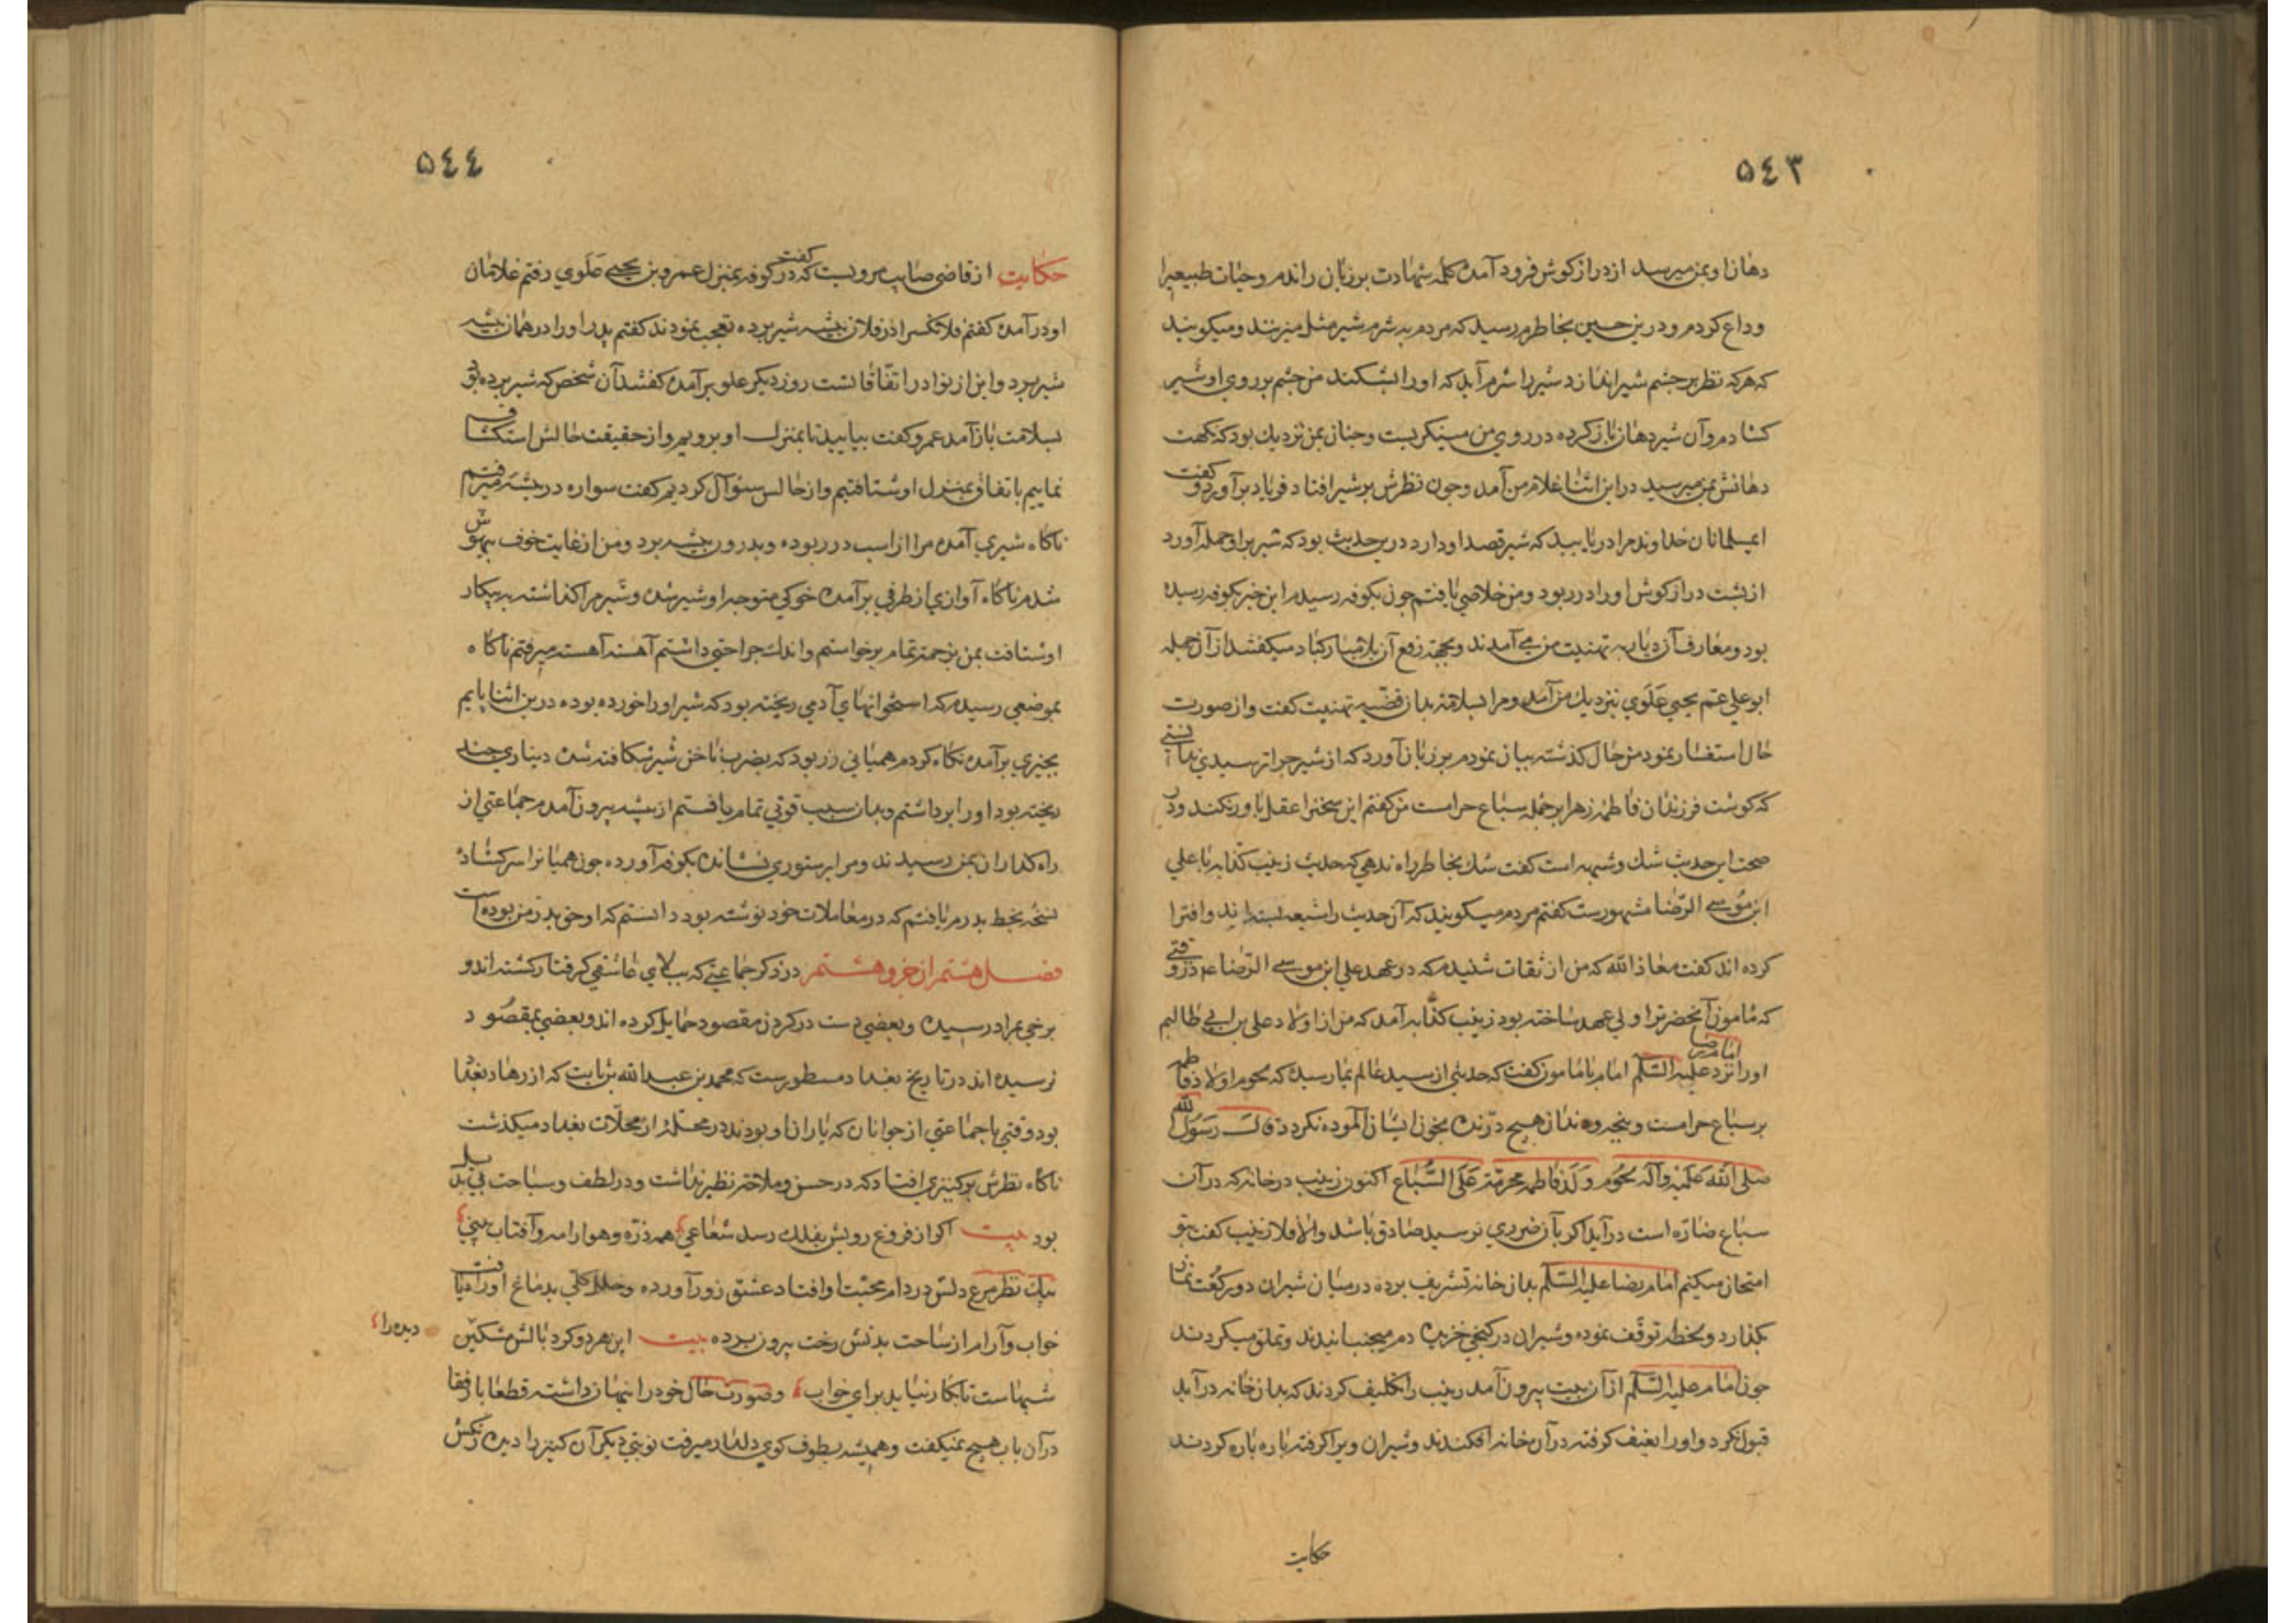 ۵٤۳
دهان او بمن میرسد از دراز کوش فرود آمده کلمه شهادت بر زبان راندم و حیات طبیعیرا
وداع کردم و درین حین بخاطرم رسید که مردم به شرم شیر مثل میزنند و میکویند
که هر که نظر بر چشم شیر اندازد شیر را شرم آید که او را بشکند من چشم بر روی او شیر
کشادم و آن شیر دهان باز کرده در روی من مینکریست و چنان بمن نزدیك بود که نکهت
دهانش بمن میرسید در این اثنا غلام من آمد و چون نظرش بر شیر افتاد فریاد برآورد و کفت
ایمسلمانان خداوند مرا دریابید که شیر قصد او دارد درین حدیث بود که شیر بر او حمله آورد
از پشت دراز کوش او را در ربود و من خلاصی یافتم چون بکوفه رسیدم این خبر بکوفه رسیده
بود و معارف آن دیار به تهنیت من می آمدند و بجهة رفع آن بلا مبارکباد میکفتند از آن جمله
ابو علی عم یحیی علوی نیز نزدیك من آمد و مرا بسلامة بدان قضیه تهنیت کفت و از صورت
حال استفسار نمود من حال کذشته بیان نمودم بر زبان آورد که از شیر چرا ترسیدی ندانستی
که کوشت فرزندان فاطمه زهرا بر جمله سباع حرامست من کفتم این سخنرا عقل باور نکند و در
صحت این حدیث شك و شبهه است کفت شك بخاطر راه ندهی که حدیث زینب کذابه با علی
ابن موسی الرضا مشهورست کفتم مردم میکویند که آن حدیث را شیعه بسته اند و افترا
کرده اند کفت معاذ الله که من از ثقات شنیدم که در عهد علی ابن موسی الرضا ع در وقتی
که مامون آنحضرترا ولی عهد ساخته بود زینب کذابه آمد که من از اولاد علی بن ابی طالبم
اورا نزد امام رضا علیه السلام امام با مامون کفت که حدیثی از سید عالم بما رسیده که لحوم اولاد فاطمه
بر سباع حرامست و پنجه و دندان هیچ درنده بخون ایشان آلوده نکردد قال رسول الله
صلی الله علیه وآله لحوم ولد فاطمه محرمة علی السباع اکنون زینب در خانه که در آن
سباع ضاره است در آید اکر بآن ضرری نرسید صادق باشد والا فلا زینب کفت بتو
امتحان میکنم امام رضا علیه السلام بدان خانه تشریف برده در میان شیران دو رکعت نماز
بکذارد و لحظه توقف نموده و شیران در کنجی خزیده دم میجنبانیدند و تملق میکردند
چون امام علیه السلام از آن بیت بیرون آمد زینب را تکلیف کردند که بدان خانه در آید
قبول نکرد و او را بعنف کرفته در آن خانه افکندند و شیران ویرا کرفته پاره پاره کردند
حکایت
۵٤٤
حکایت از قاضی صایب مرویست که کفت در کوفه بمنزل عمرو بن یحیی علوی رفتم غلامان
او در آمده کفتم فلانکسرا در فلان بیشه شیر برده تعجب نمودند کفتم پدر او را در همان بیشه
شیر برد و این از نوادر اتفاقاتست روز دیکر علو برآمده کفتند آن شخص که شیر برده بود
بسلامت باز آمد عمرو کفت بیایید تا بمنزل او برویم و از حقیقت حالش استکشاف
نماییم باتفاق بمنزل او شتافتیم و از حالس سئوال کردیم کفت سواره در بیشه میرفتم
ناکاه شیری آمده مرا از اسب در ربوده و بدرون بیشه برد و من از غایت خوف بیهوش
شدم ناکاه آوازی از طرفی برآمده خوکی متوجه او شیر شده و شیر مرا کذاشته به پیکار
او شتافت بمن بزحمة تمام برخواستم و اندك جراحتی داشتم آهسته آهسته میرفتم ناکاه
بموضعی رسیدم که استخوانهای آدمی ریخته بود که شیر او را خورده بوده درین اثنا پایم
بچیزی برآمده نکاه کردم همیانی زر بود که بضرب ناخن شیر شکافته شده دیناری چند
ریخته بود او را برداشتم و بدان سبب قوتی تمام یافتم از بیشه بیرون آمدم جماعتی از
راه کذاران بمن رسیدند و مرا بر ستوری نشانده بکوفه آورده چون همیانرا سر کشاده
نسخه بخط پدرم یافتم که در معاملات خود نوشته بود دانستم که او حق پدر من بوده است
فصل هشتم از جزو هشتم در ذکر جماعتی که ببلای عاشقی کرفتار کشته اند و
برخی بمراد رسیده و بعضی دست در کردن مقصود حمایل کرده اند و بعضی بمقصود
نرسیده اند در تاریخ بغداد مسطورست که محمد بن عبد الله بن ثابت که از زهاد بغداد
بود وقتی با جماعتی از جوانان که یاران او بودند در محلهٔ از محلات بغداد میکذشت
ناکاه نظرش بر کنیزی افتاد که در حسن و ملاحة نظیر نداشت و در لطف و سباحت بی بدیل
بود بیت اکر از فروغ رویش بفلك رسد شعاعی همه ذره و هوا را مه و آفتاب بینی
بیك نظر مرغ دلش در دام محبت او افتاد عشق زور آورده و خلل کلی بدماغ او راه یافت
خواب و آرام از ساحت بدنش رخت بیرون برده بیت این هر دو کرد بالش مشکین
دیده را
شبهاست تا بکار نیاید برای خواب و صورت حال خود را پنهان داشته قطعا با رفقا
در آن باب هیچ نمیکفت و همیشه بطوف کوی دلدار میرفت نوبتی دیکر آن کنیز را دیده نرکس